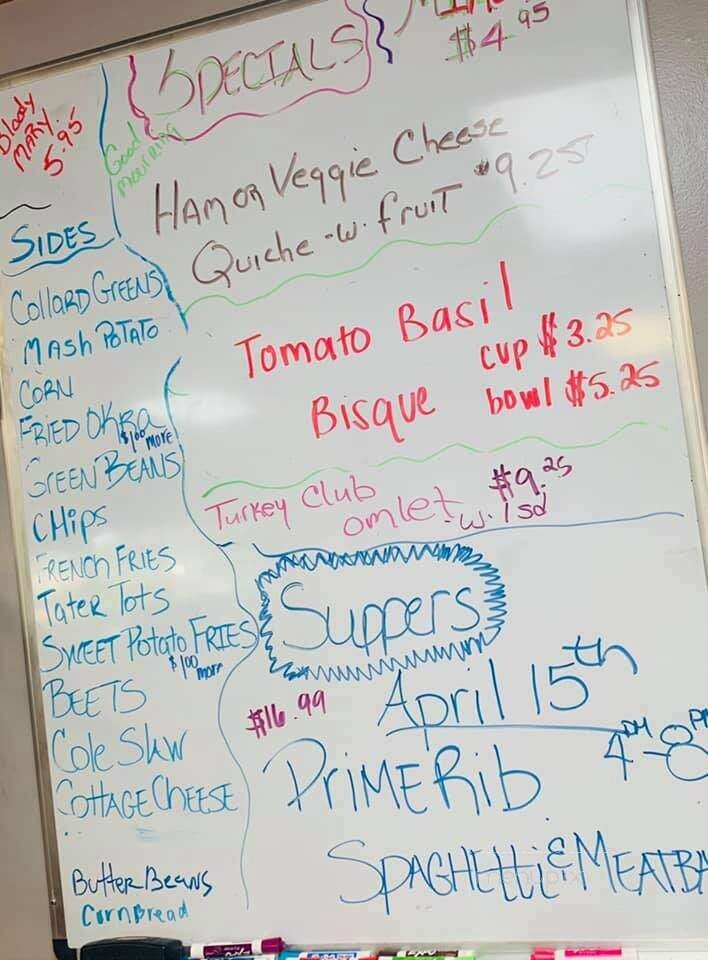 SPECIALS
$4.95
Bloody
MARY
5.95
Good
mourning
HAM OR Veggie Cheese
Quiche -w- fruit $9.25
Tomato Basil
Bisque
cup $3.25
bowl $5.25
Turkey Club
omlet w. 1 sd
$9.25
SIDES
Collard Greens
Mash Potato
Corn
Fried Okra
$1.00 more
Green Beans
Chips
French Fries
Tater Tots
Sweet Potato Fries
$1.00 more
Beets
Cole Slaw
Cottage Cheese
Butter Beans
Cornbread
Suppers
April 15th
$16.99
4PM-8PM
Prime Rib
Spaghetti & Meatba